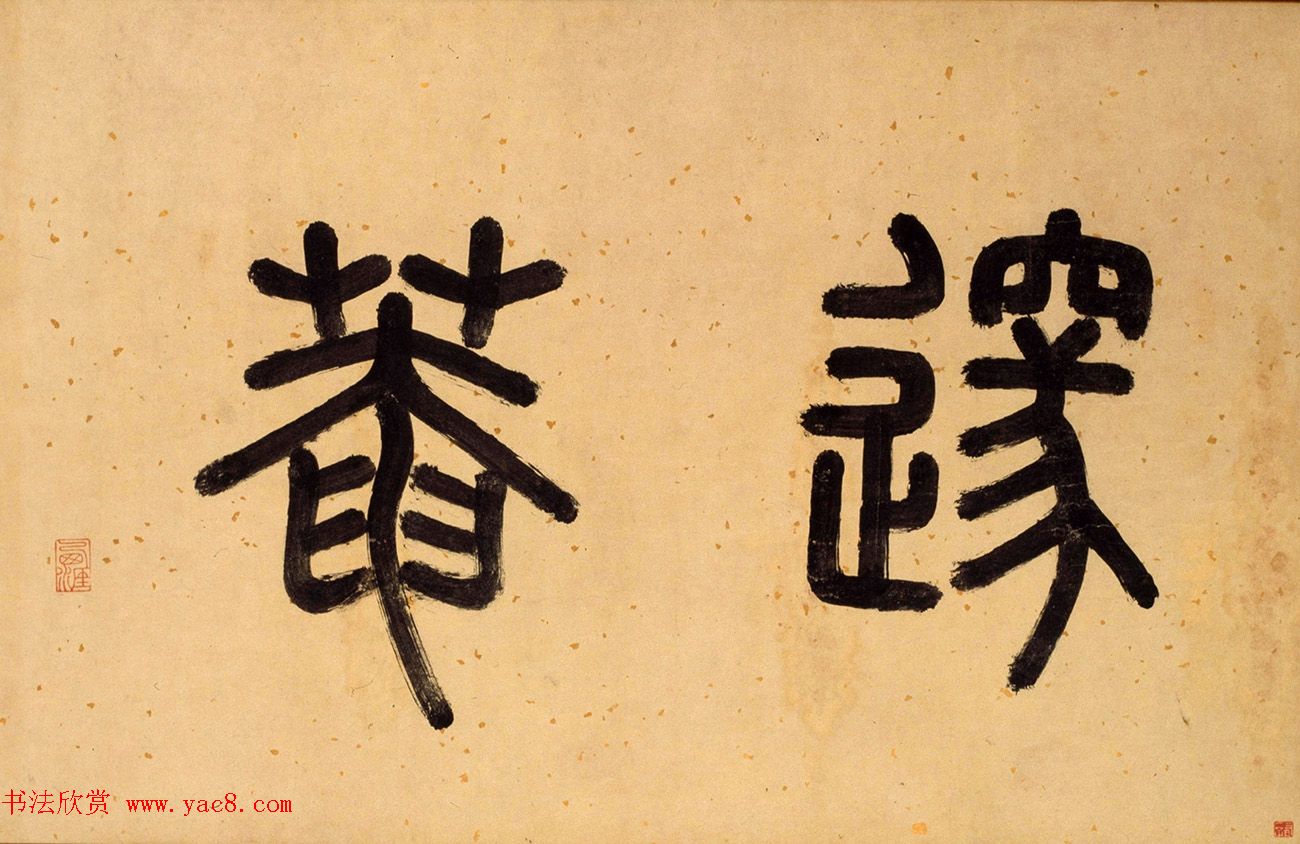 邃菴
书法欣赏 www.yac8.com